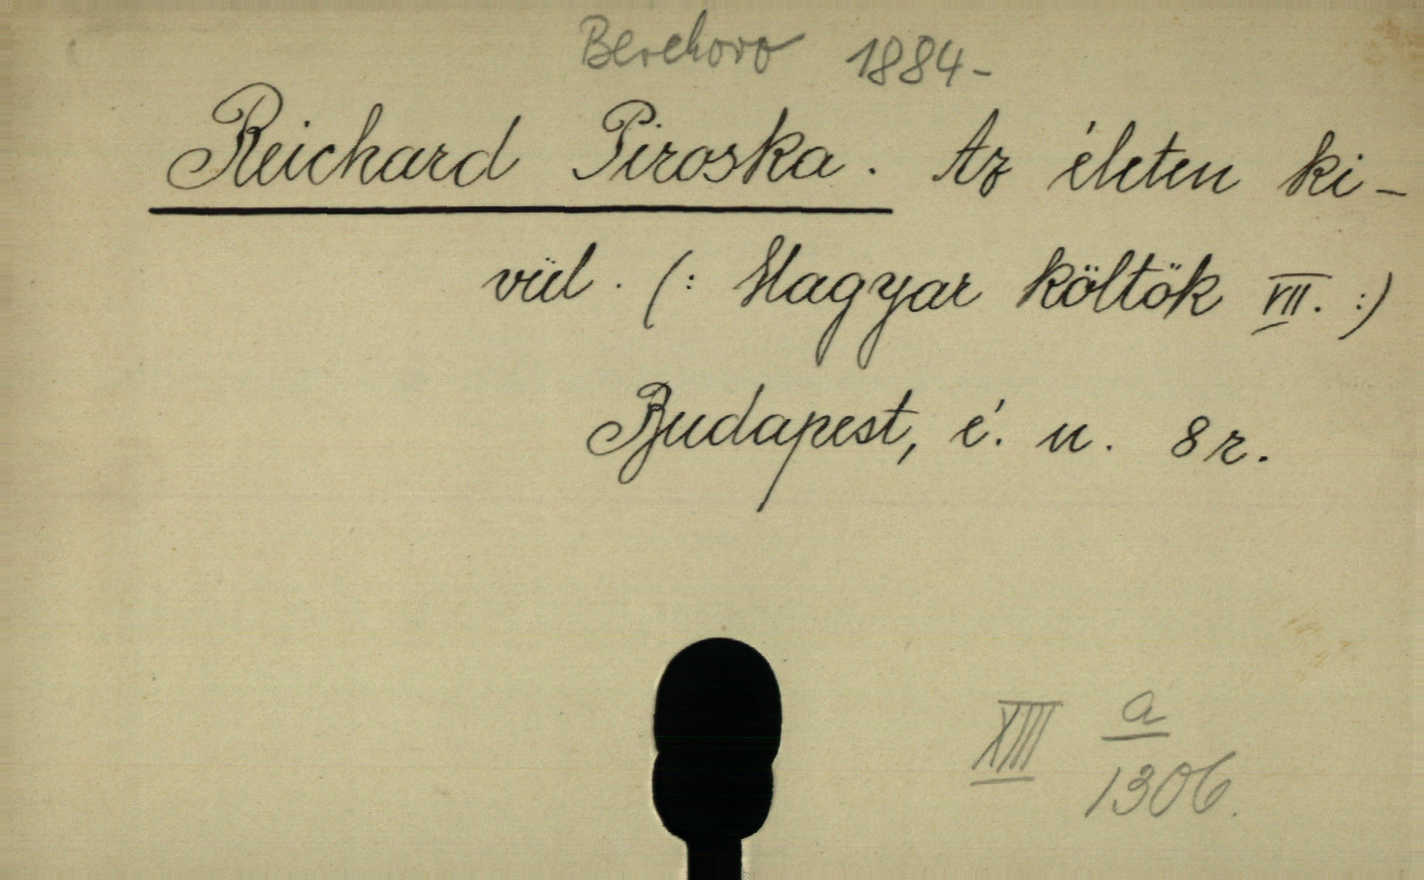 Berehovo 1884-
Reichard Piroska. Az életen ki-
vül. (: Magyar költök VII. :)
Budapest, é. n. 8 r.
XIII a
1306.